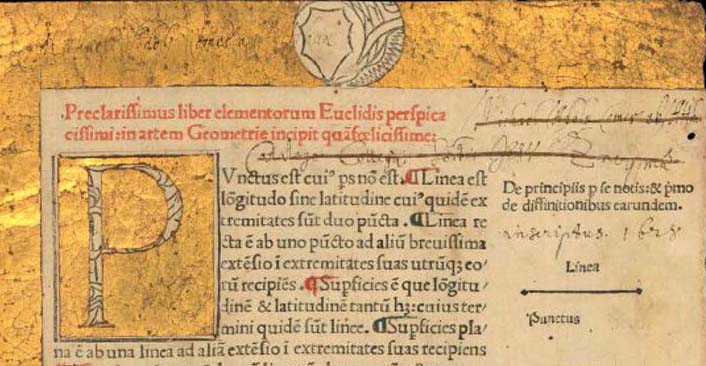 Preclarissimus liber elementorum Euclidis perspica
cissimi: in artem Geometrie incipit quāfœlicissime:
PVnctus est cuiꝰ ps nō est. ¶ Linea est
lōgitudo sine latitudine cuiꝰ quidē ex
tremitates sūt duo pūcta. ¶ Linea re
cta ē ab uno pūcto ad aliū brevissima
extēsio ī extremitates suas utrūqꝫ eo/
rū recipiēs. ¶ Supficies ē que lōgitu/
dinē & latitudinē tantū hꝫ: cuius ter
mini quidē sūt linee. ¶ Supficies pla/
na ē ab una linea ad aliā extēsio ī extremitates suas recipiens
De principiis p se notis: & pmo
de diffinitionibus earundem.
inscriptus. 1628
Linea
Punctus